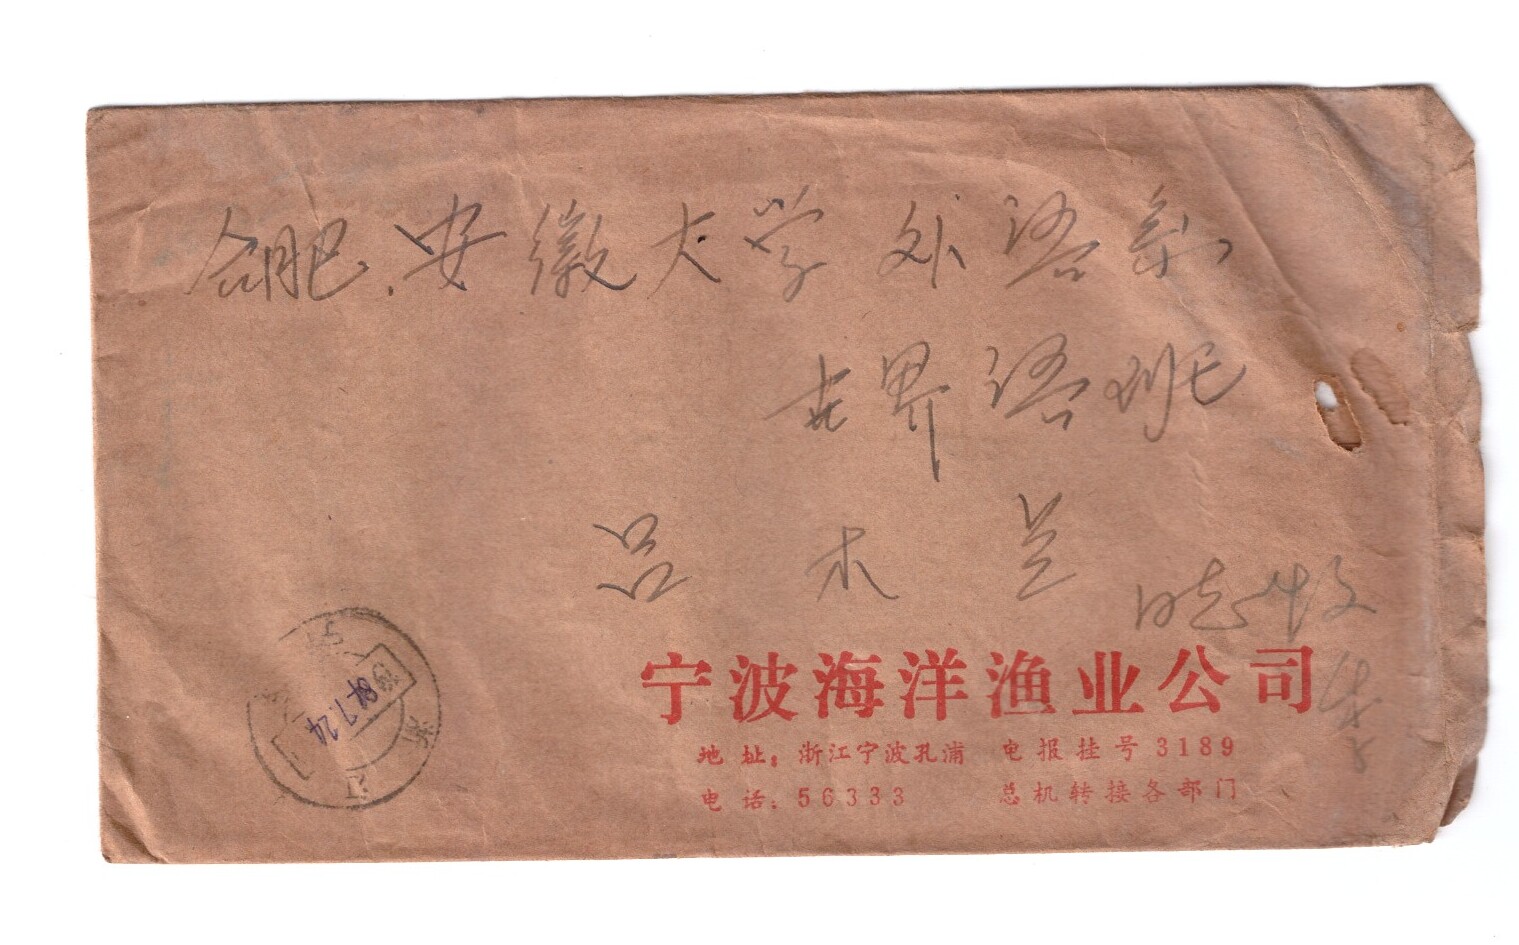 合肥.安徽大学外语系
世界语班
吕木兰
宁波海洋渔业公司
地址：浙江宁波孔浦 电报挂号3189
电话：56333 总机转接各部门
84.7.24